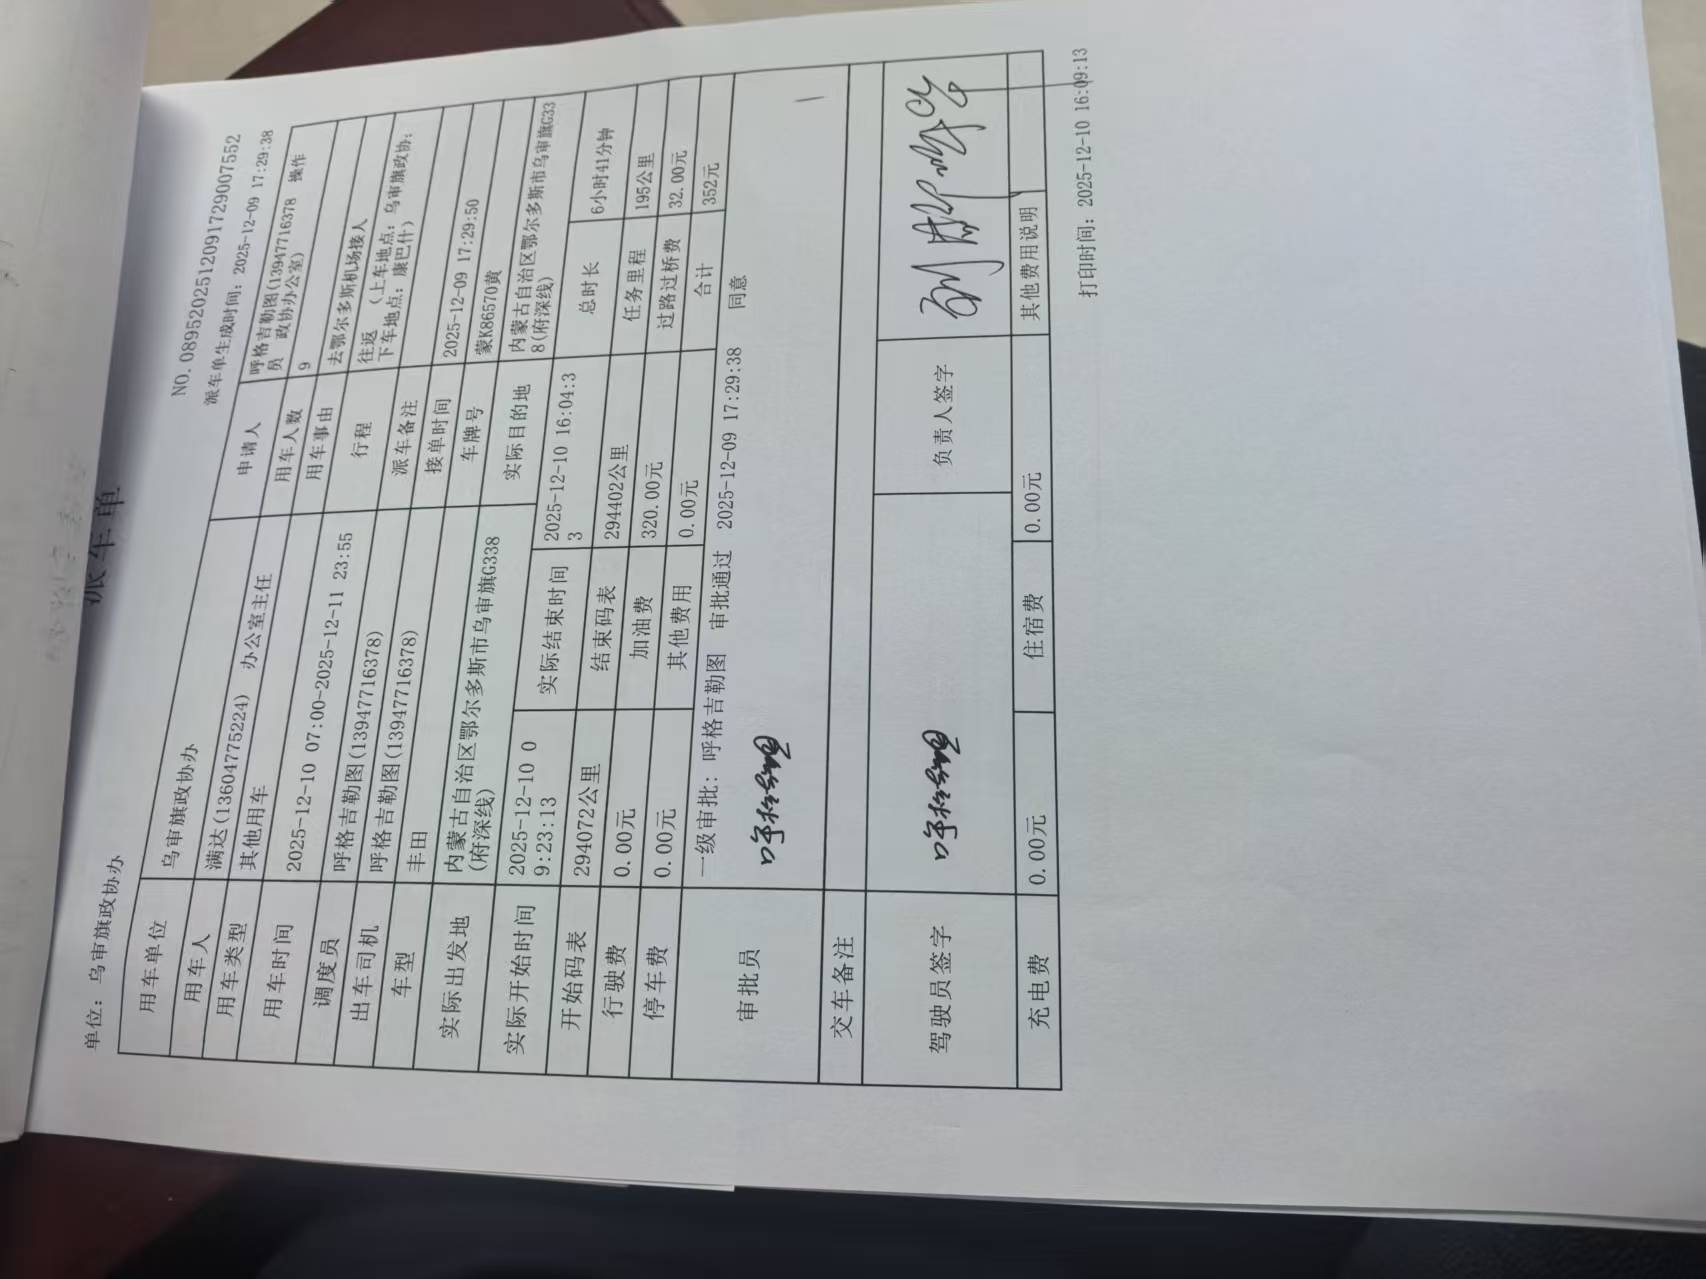 派车单
NO.0895202512091729007552
单位: 乌审旗政协办
派车单生成时间: 2025-12-09 17:29:38
用车单位 乌审旗政协办 申请人 呼格吉勒图(13947716378 操作
员 政协办公室)
用车人 满达(13604775224) 办公室主任 用车人数 9
用车类型 其他用车 用车事由 去鄂尔多斯机场接人
用车时间 2025-12-10 07:00-2025-12-11 23:55 行程 往返 (上车地点: 乌审旗政协;
下车地点: 康巴什)
调度员 呼格吉勒图(13947716378) 派车备注
出车司机 呼格吉勒图(13947716378) 接单时间 2025-12-09 17:29:50
车型 丰田 车牌号 蒙K86570黄
实际出发地 内蒙古自治区鄂尔多斯市乌审旗G338
(府深线) 实际目的地 内蒙古自治区鄂尔多斯市乌审旗G33
8(府深线)
实际开始时间 2025-12-10 0
9:23:13 实际结束时间 2025-12-10 16:04:3
3 总时长 6小时41分钟
开始码表 294072公里 结束码表 294402公里 任务里程 195公里
行驶费 0.00元 加油费 320.00元 过路过桥费 32.00元
停车费 0.00元 其他费用 0.00元 合计 352元
审批员 一级审批: 呼格吉勒图 审批通过 2025-12-09 17:29:38 同意
交车备注
驾驶员签字 负责人签字
充电费 0.00元 住宿费 0.00元 其他费用说明
打印时间: 2025-12-10 16:09:13